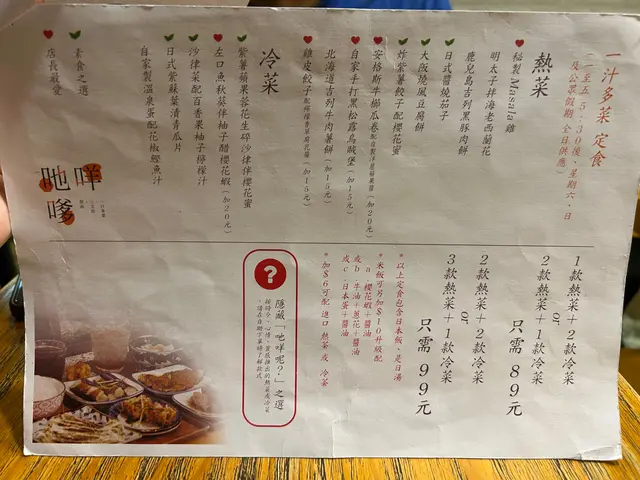 一汁多菜 定食
（一至五 5:30後 星期六、日
及公眾假期 全日供應）
熱菜
秘製 Masala 雞
明太子拌海老西蘭花
鹿兒島吉列黑豚肉餅
日式醬燒茄子
大阪燒風豆腐餅
炸紫薯餃子配櫻花蜜
安格斯牛櫛瓜卷 配自製洋蔥蘋果醬（加20元）
自家手打黑松露烏賊堡（加15元）
北海道吉列牛肉薯餅（加15元）
雞皮餃子 配檸檬香草麻花醬（加15元）
冷菜
紫薯蘋果蓉花生碎沙律伴櫻花蜜
左口魚秋葵伴柚子醋櫻花蝦（加20元）
沙律菜配百香果柚子檸檬汁
日式紫蘇葉漬青瓜片
自家製溫泉蛋配花椒鰹魚汁
素食之選
店長最愛
咩
吔
嗲
1款熱菜＋2款冷菜
or
2款熱菜＋1款冷菜
只需 89元
2款熱菜＋2款冷菜
or
3款熱菜＋1款冷菜
只需 99元
*以上定食包含日本飯、是日湯
*米飯可另加$10升級配
a 櫻花蝦＋醬油
或b 牛油＋蔥花＋醬油
或c 日本蛋＋醬油
*加$6可配 進口 熱茶 或 冷茶
?
隱藏「吔咩呢？」之選
按時令、心情、靈感推出的熱菜或冷菜
，請在自助下單時了解款式